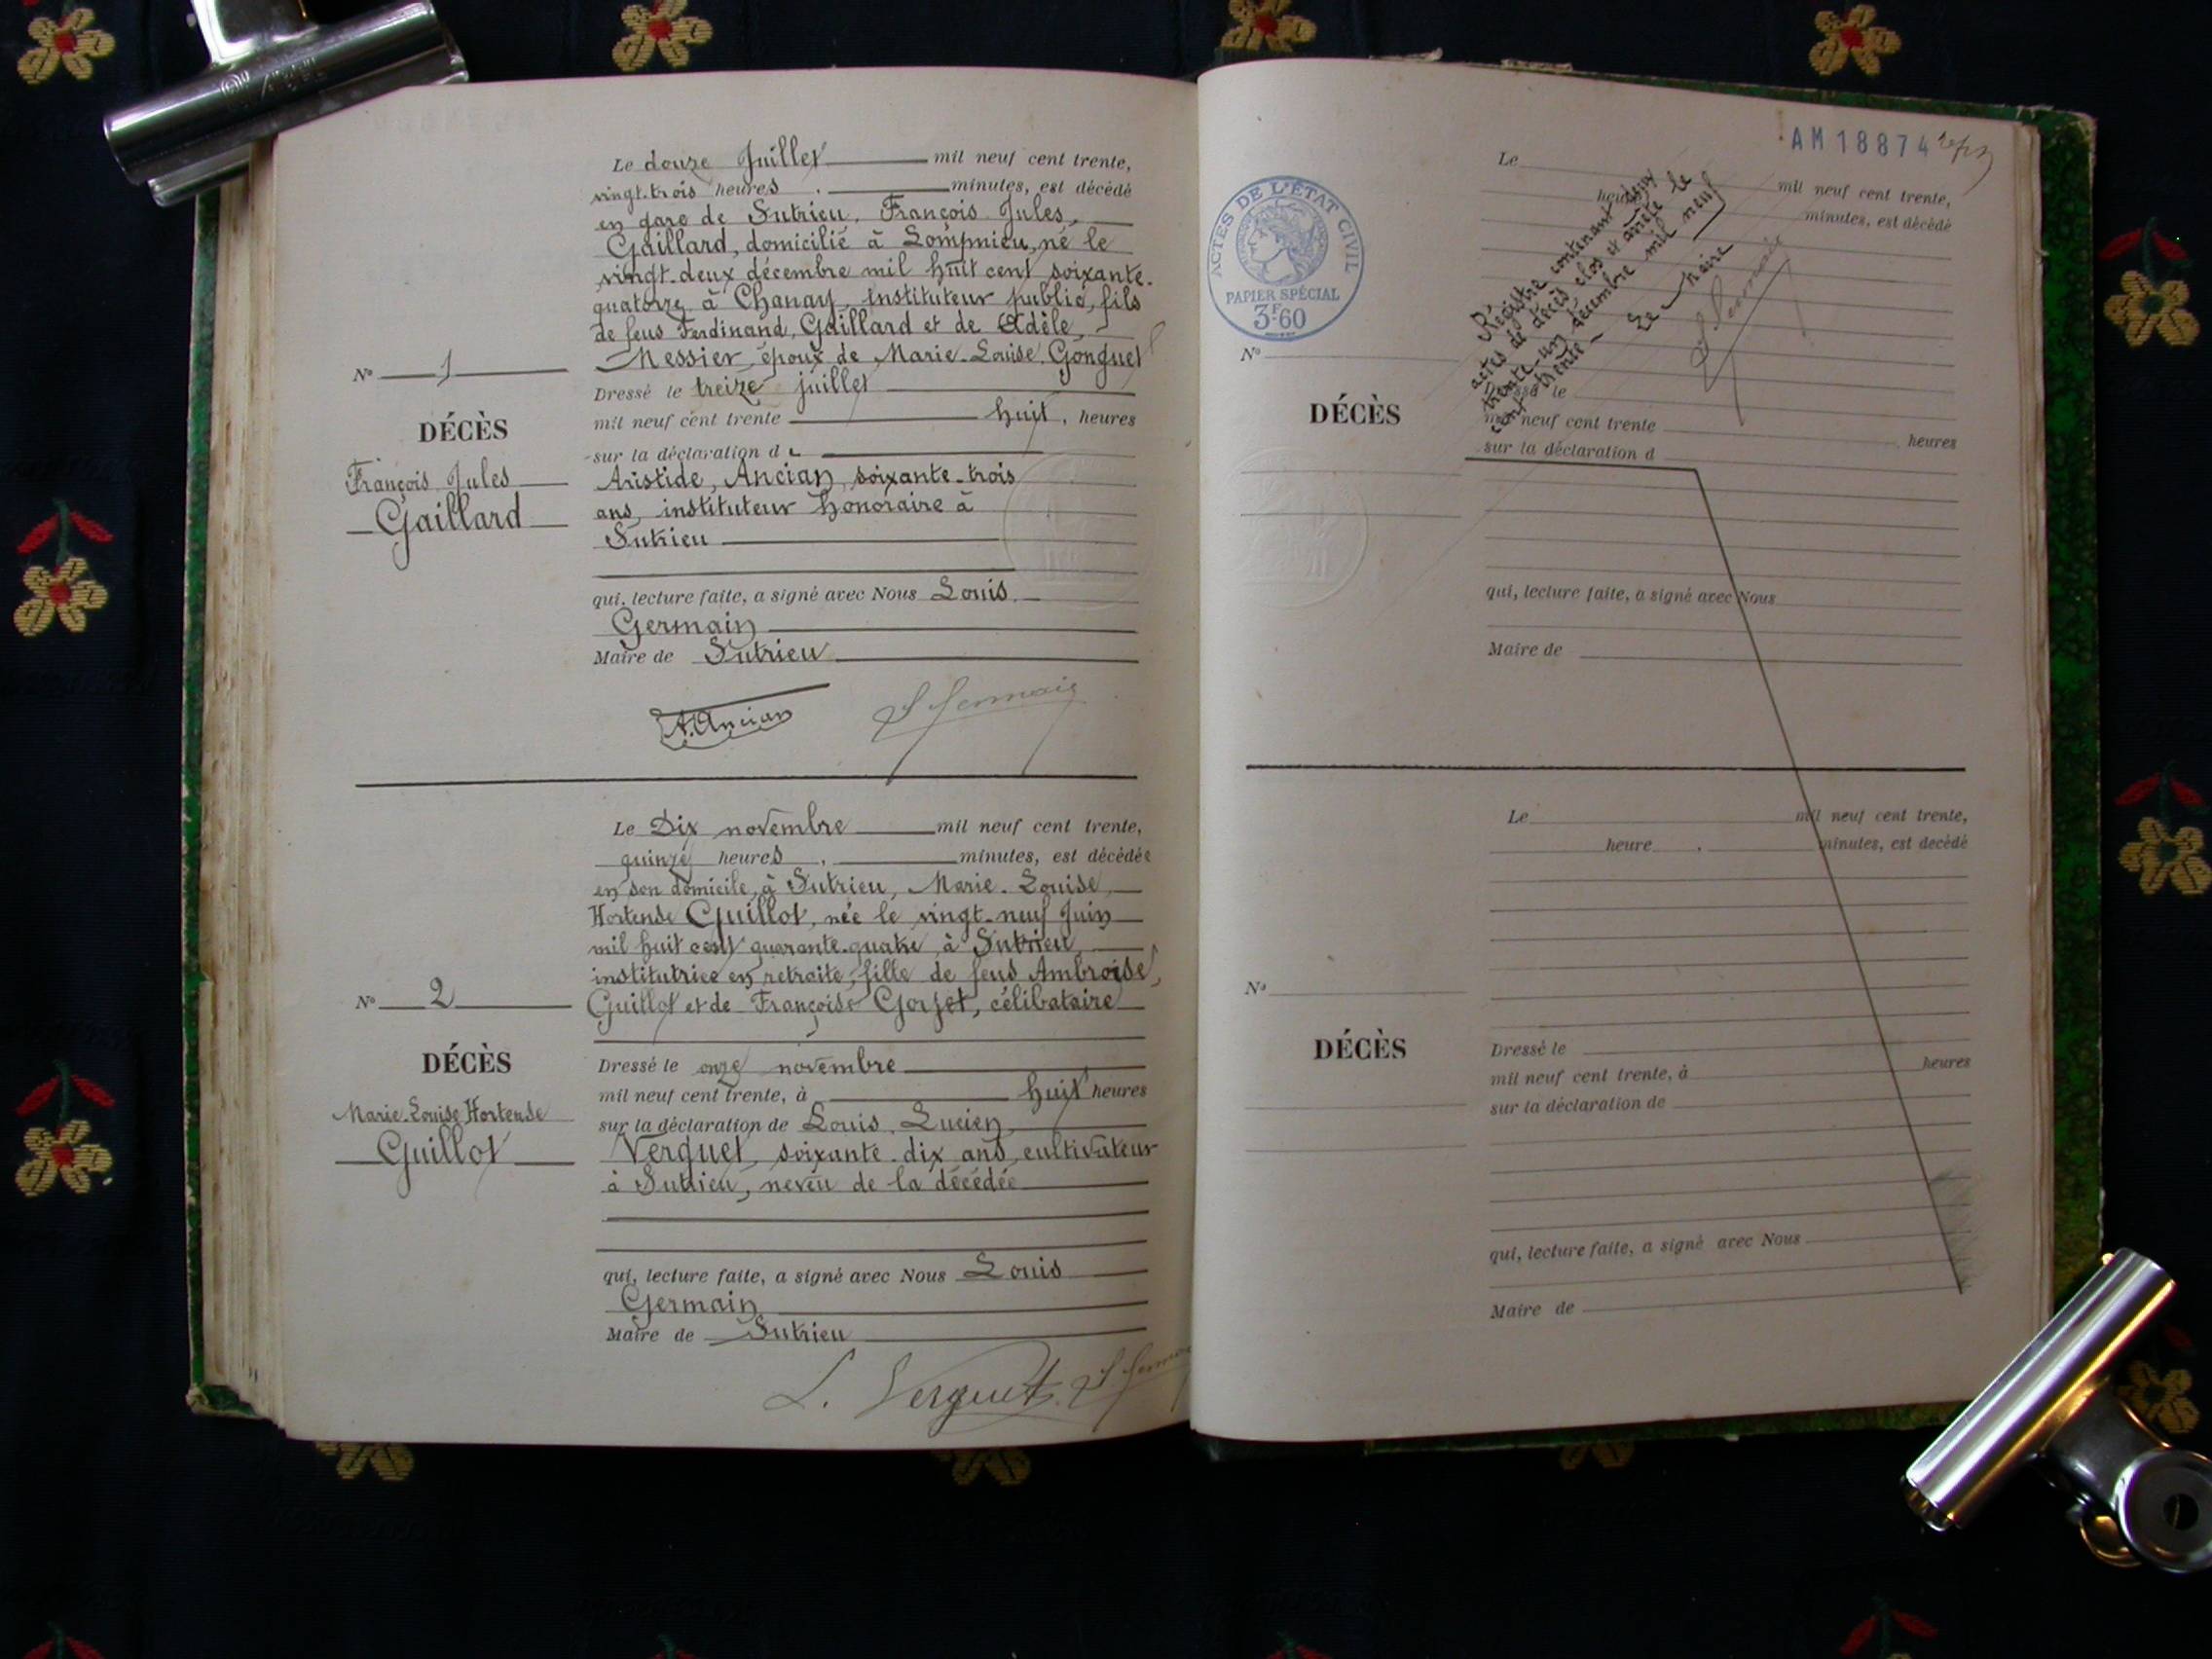 Le douze Juillet mil neuf cent trente,
vingt-trois heures , minutes, est décédé
en gare de Sutrieu, François Jules,
Gaillard, domicilié à Lompnieu, né le
vingt-deux décembre mil huit cent soixante-
quatorze à Chanay, instituteur public, fils
de feus Ferdinand, Gaillard et de Adèle,
Messier, époux de Marie-Louise Gonguet
Nº 1
Dressé le treize juillet
mil neuf cent trente huit, heures
DÉCÈS
sur la déclaration d e
François Jules
Gaillard
Aristide, Ancian, soixante-trois
ans, instituteur honoraire à
Sutrieu
qui, lecture faite, a signé avec Nous Louis
Germain
Maire de Sutrieu
A. Ancian L Germain
Le Dix novembre mil neuf cent trente,
quinze heures , minutes, est décédée
en son domicile, à Sutrieu, Marie-Louise,
Hortense Guillot, née le vingt-neuf Juin
mil huit cent quarante-quatre, à Sutrieu,
institutrice en retraite, fille de feus Ambroise,
Guillot et de Françoise Gorjet, célibataire
Nº 2
DÉCÈS
Marie-Louise Hortense
Guillot
Dressé le onze novembre
mil neuf cent trente, à huit heures
sur la déclaration de Louis, Lucien,
Verguet, soixante-dix ans, cultivateur
à Sutrieu, neveu de la décédée
qui, lecture faite, a signé avec Nous Louis
Germain
Maire de Sutrieu
L. Verguet L Germain
AM 18874
ACTES DE L'ÉTAT CIVIL
PAPIER SPÉCIAL
3F60
Registre contenant deux
actes de décès clos et arrêté le
trente-un décembre mil neuf
cent trente-
Le maire
L Germain
Le mil neuf cent trente,
heure minutes, est décédé
Nº
DÉCÈS
Dressé le
mil neuf cent trente heures
sur la déclaration d
qui, lecture faite, a signé avec Nous
Maire de
Le mil neuf cent trente,
heure , minutes, est decédé
Nº
DÉCÈS
Dressé le
mil neuf cent trente, à heures
sur la déclaration de
qui, lecture faite, a signé avec Nous
Maire de